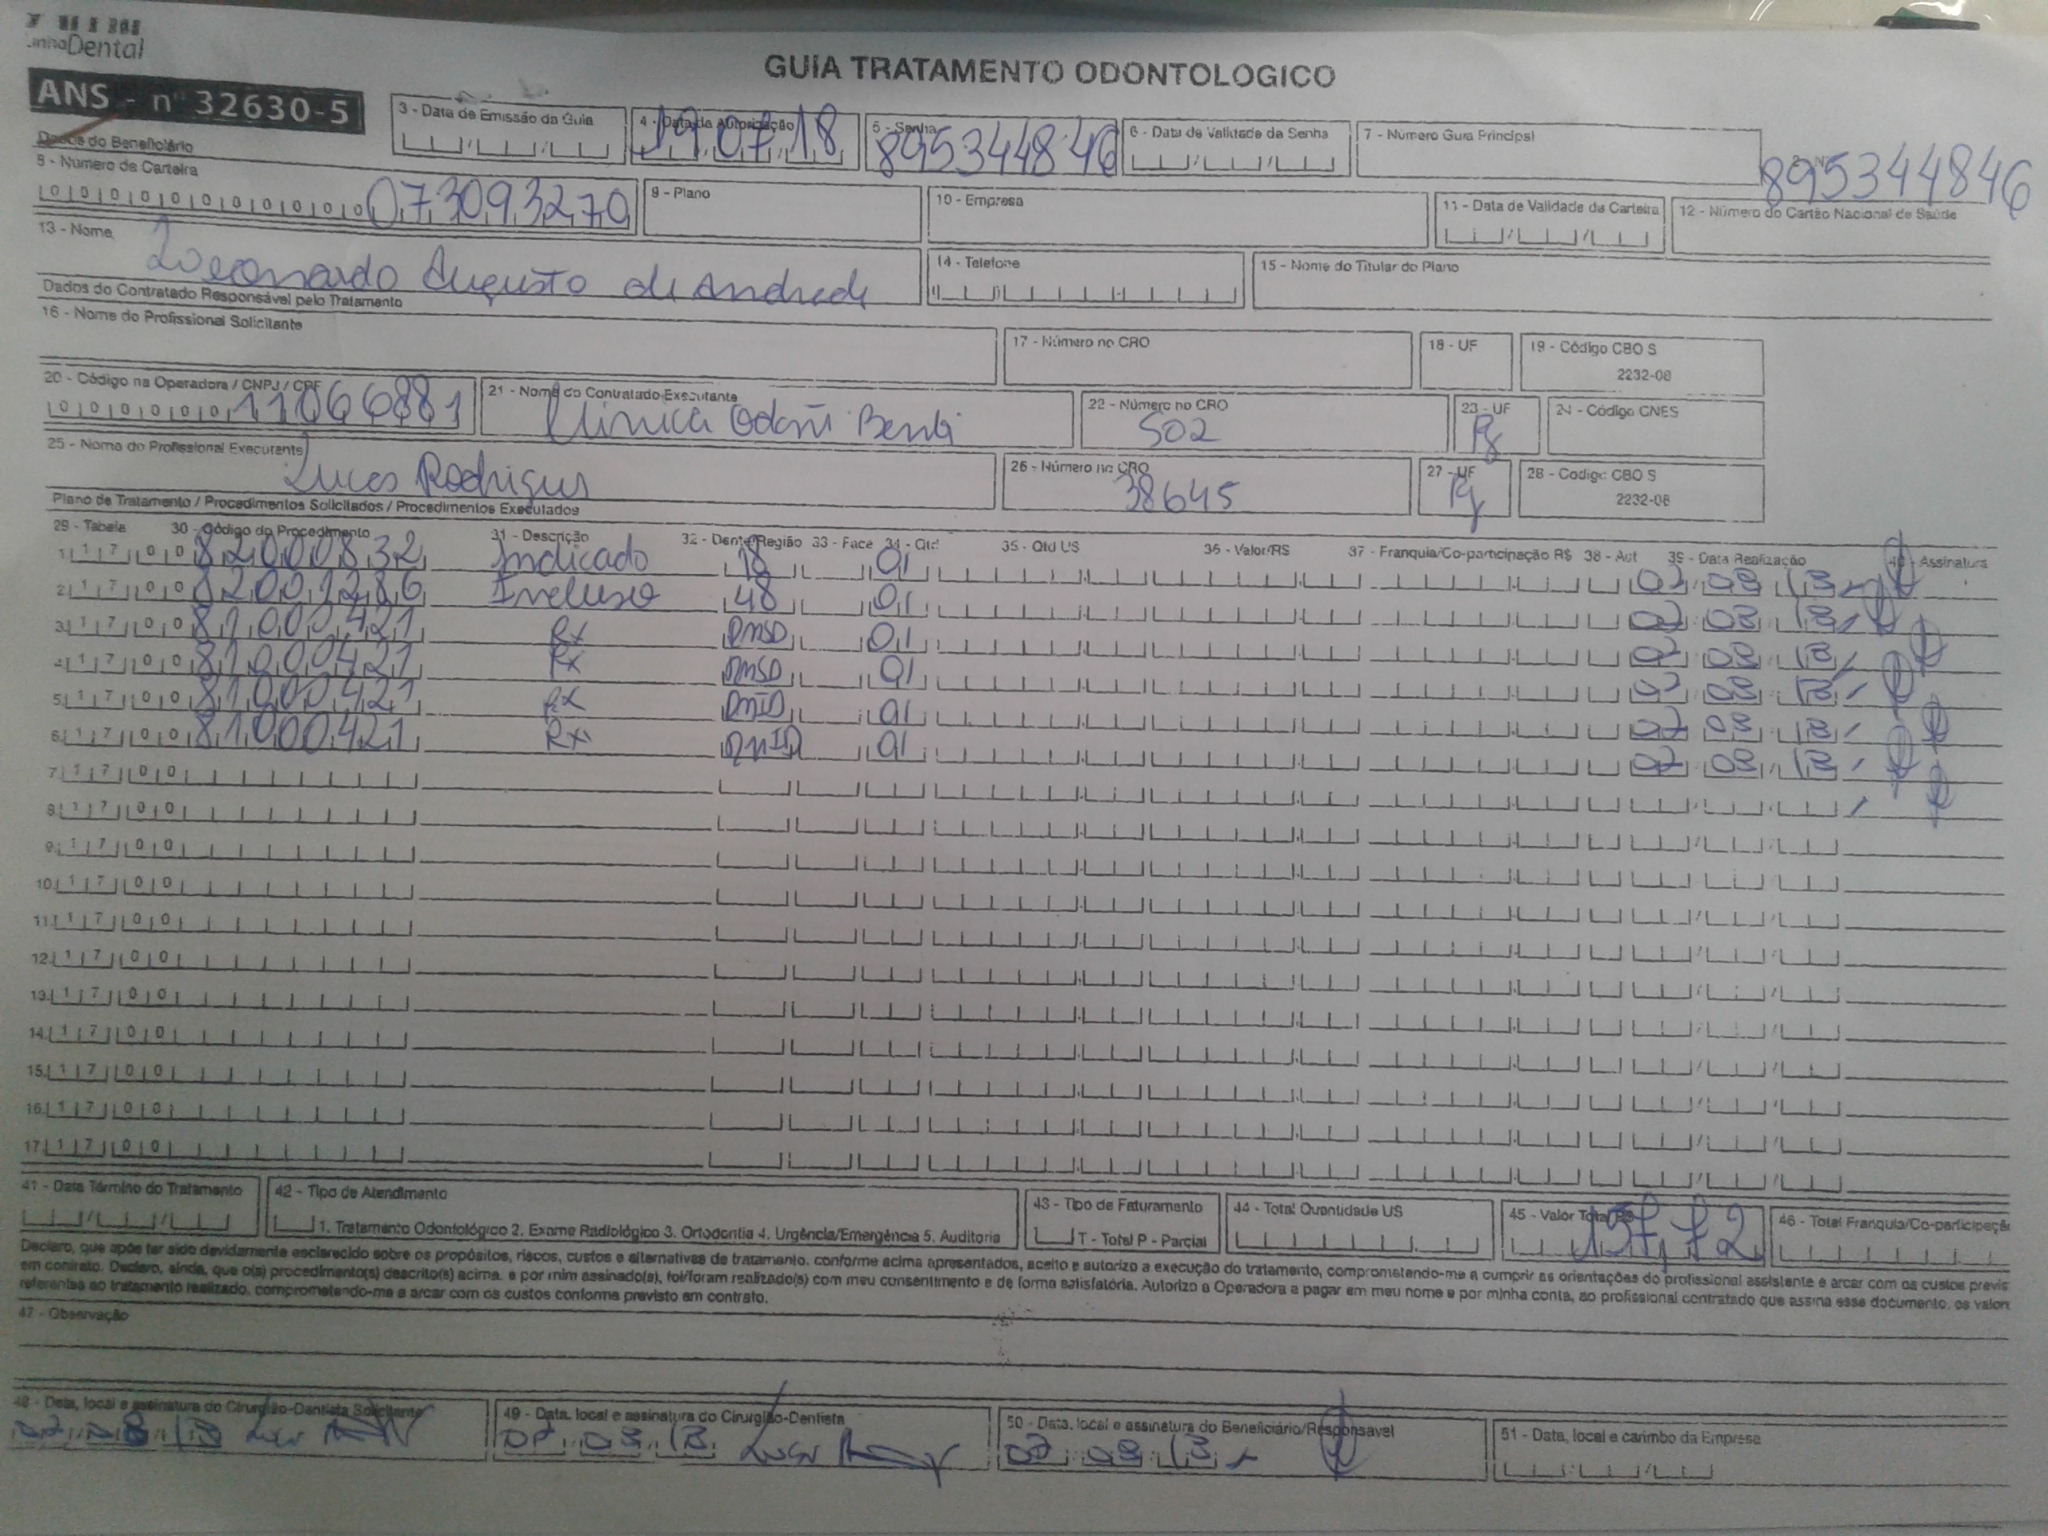 Dental
GUIA TRATAMENTO ODONTOLOGICO
ANS - nº 32630-5
3 - Data de Emissão da Guia
4 - Data da Autorização
19 07 18
5 - Senha
895344846
6 - Data de Validade da Senha
7 - Número Guia Principal
895344846
Dados do Beneficiário
8 - Número da Carteira
00000000000 073093270
9 - Plano
10 - Empresa
11 - Data de Validade da Carteira
12 - Número do Cartão Nacional de Saúde
13 - Nome
Leonardo Augusto de Andrade
14 - Telefone
15 - Nome do Titular do Plano
Dados do Contratado Responsável pelo Tratamento
16 - Nome do Profissional Solicitante
17 - Número no CRO
18 - UF
19 - Código CBO S
2232-08
20 - Código na Operadora / CNPJ / CPF
0000000 11066881
21 - Nome do Contratado Executante
Clinica
22 - Número no CRO
502
23 - UF
24 - Código CNES
25 - Nome do Profissional Executante
Lucas Rodrigues
26 - Número no CRO
38645
27 - UF
28 - Código CBO S
2232-08
Plano de Tratamento / Procedimentos Solicitados / Procedimentos Executados
29 - Tabela 30 - Código do Procedimento 31 - Descrição 32 - Dente/Região 33 - Face 34 - Qtd 35 - Qtd US 36 - Valor/R$ 37 - Franquia/Co-participação R$ 38 - Aut 39 - Data Realização 40 - Assinatura
1. 17 00 82000832 Indicado 18 01 02 08 18
2. 17 00 82001286 Incluso 48 01 02 08 18
3. 17 00 81000421 Rx RMSD 01 02 08 18
4. 17 00 81000421 Rx RMSD 01 02 08 18
5. 17 00 81000421 Rx RMID 01 02 08 18
6. 17 00 81000421 Rx RMID 01 02 08 18
7. 17 00
8. 17 00
9. 17 00
10. 17 00
11. 17 00
12. 17 00
13. 17 00
14. 17 00
15. 17 00
16. 17 00
17. 17 00
41 - Data Término do Tratamento
42 - Tipo de Atendimento
1. Tratamento Odontológico 2. Exame Radiológico 3. Ortodontia 4. Urgência/Emergência 5. Auditoria
43 - Tipo de Faturamento
T - Total P - Parcial
44 - Total Quantidade US
45 - Valor Total R$
46 - Total Franquia/Co-participaçã
Declaro, que após ter sido devidamente esclarecido sobre os propósitos, riscos, custos e alternativas de tratamento, conforme acima apresentados, aceito e autorizo a execução do tratamento, comprometendo-me a cumprir as orientações do profissional assistente e arcar com os custos previs
em contrato. Declaro, ainda, que o(s) procedimento(s) descrito(s) acima, e por mim assinado(s), foi/foram realizado(s) com meu consentimento e de forma satisfatória. Autorizo a Operadora a pagar em meu nome e por minha conta, ao profissional contratado que assina esse documento, os valore
referentes ao tratamento realizado, comprometendo-me a arcar com os custos conforme previsto em contrato.
47 - Observação
48 - Data, local e assinatura do Cirurgião-Dentista Solicitante
02 08 18
49 - Data, local e assinatura do Cirurgião-Dentista
02 08 18
50 - Data, local e assinatura do Beneficiário/Responsável
02 08 18
51 - Data, local e carimbo da Empresa